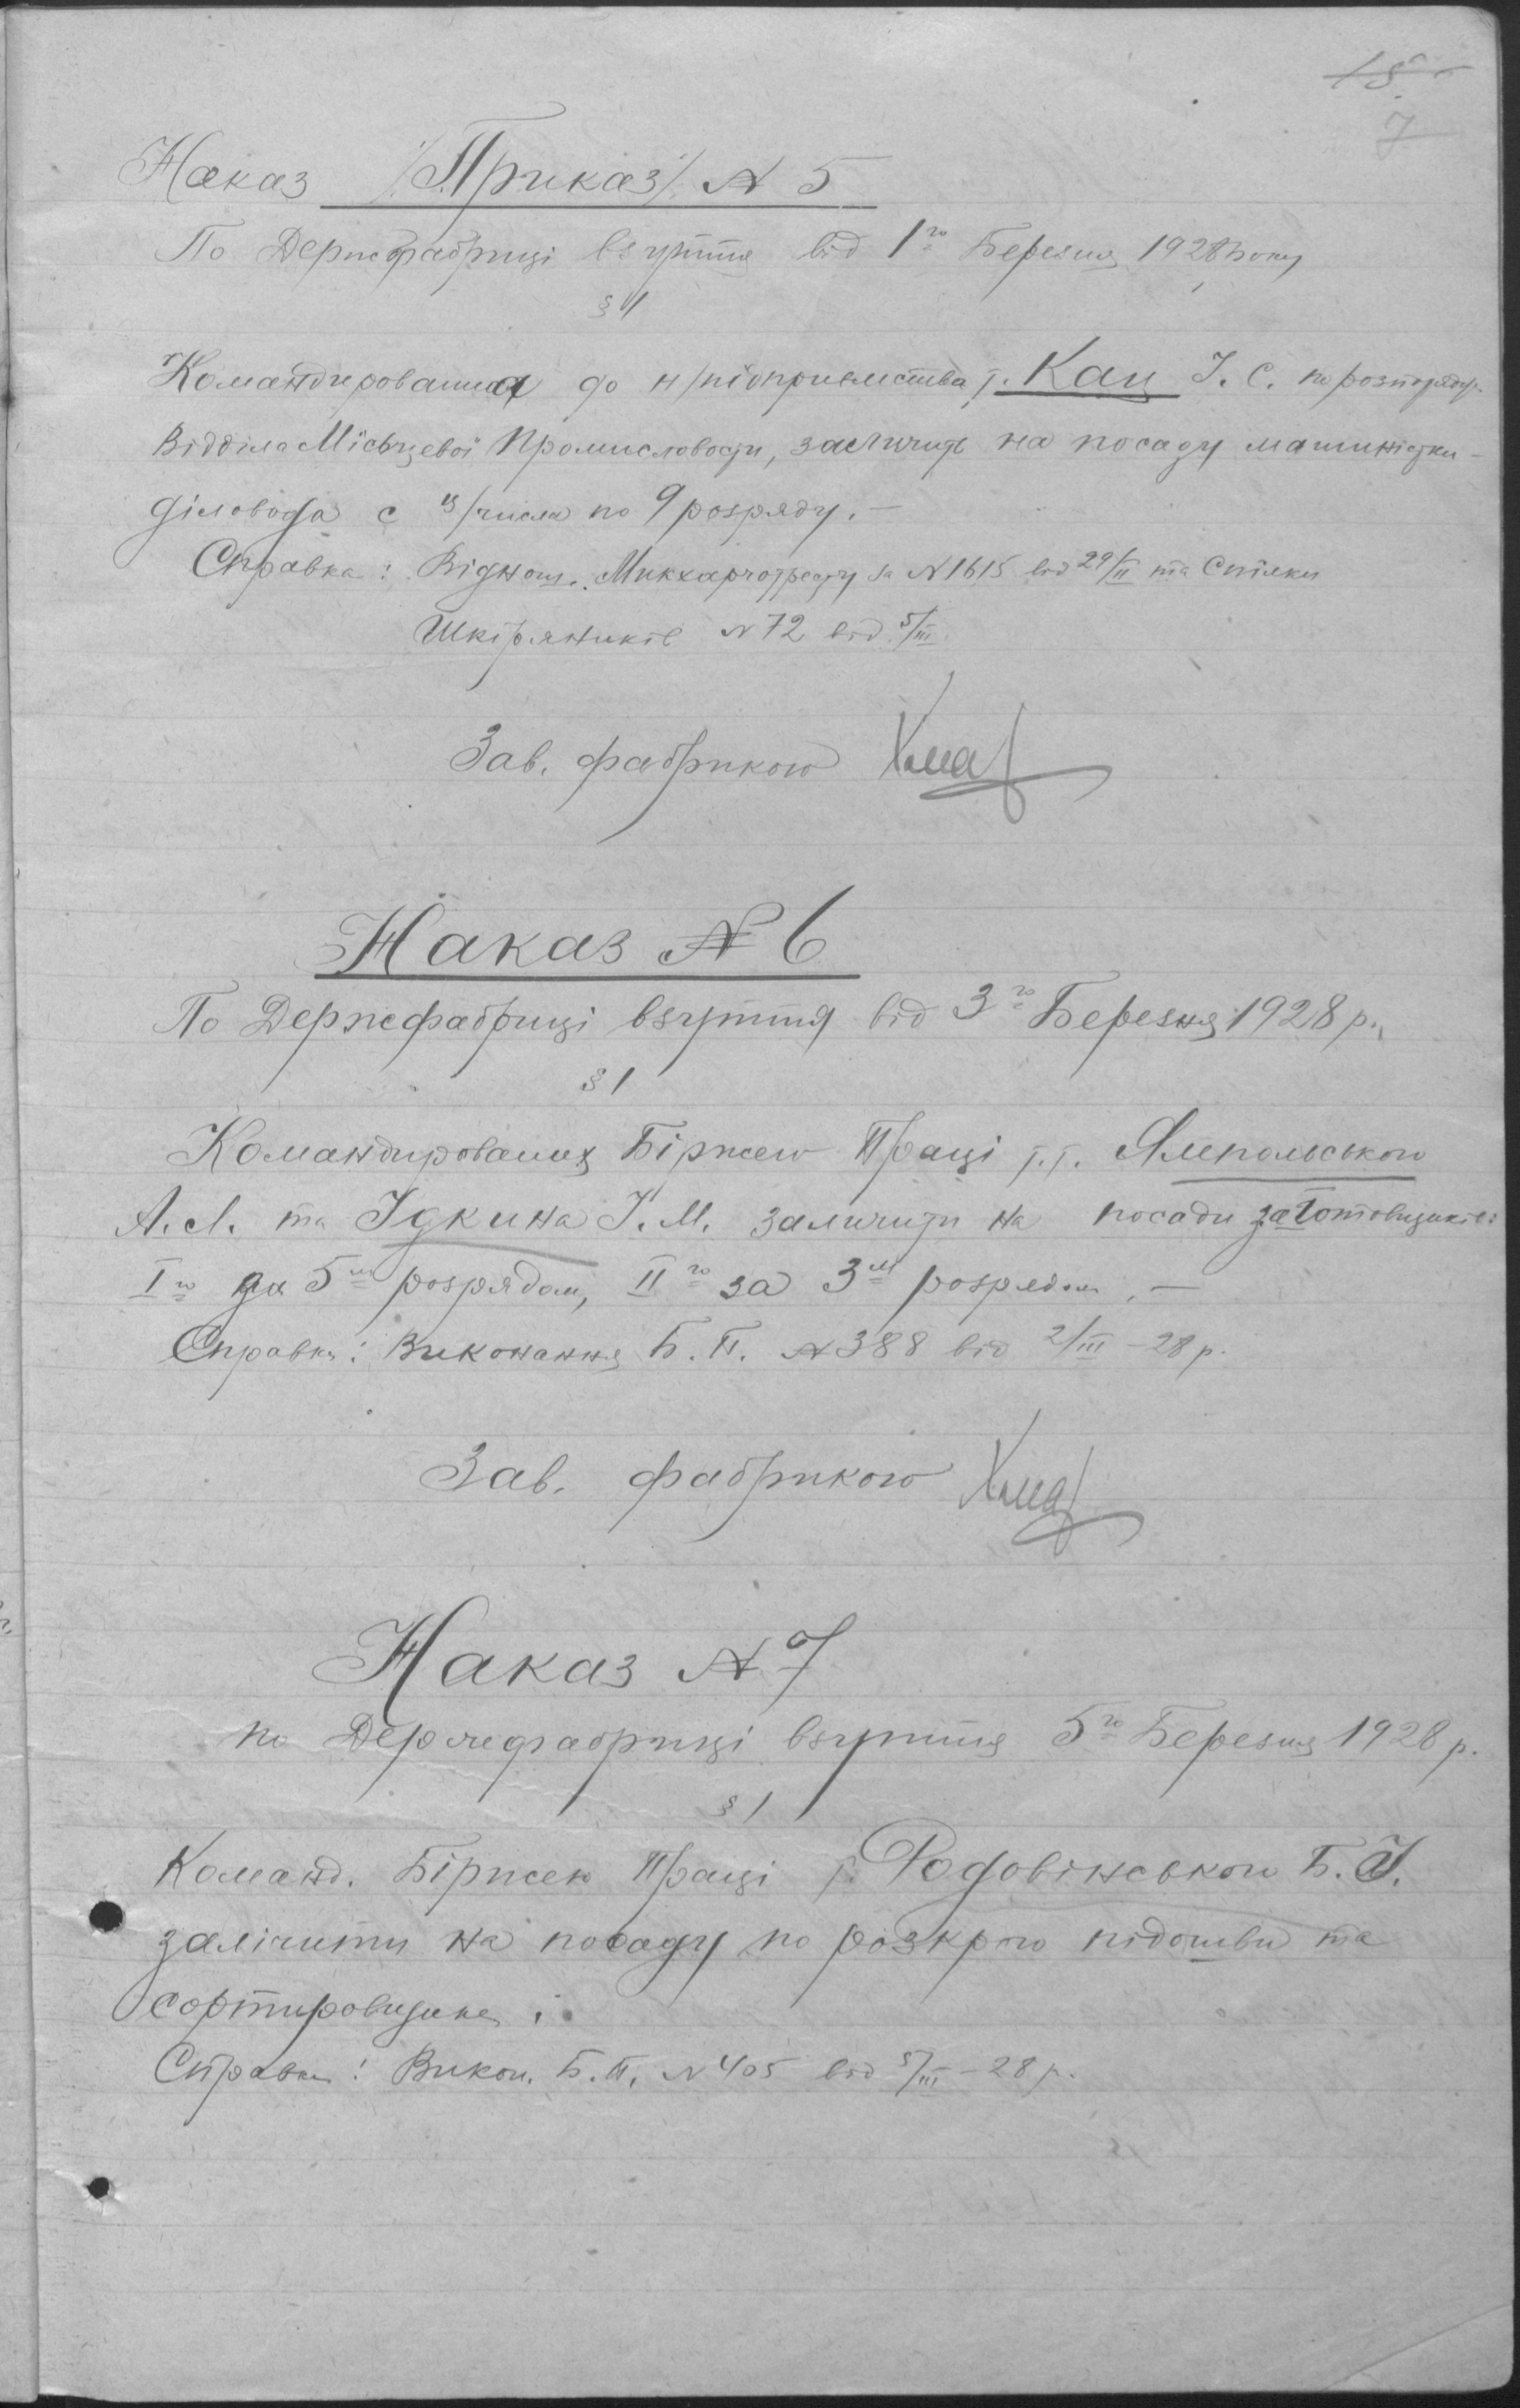 15
7
Наказ /Приказ/ № 5
По Держфабриці взуття від 1го Березня 1928 року
§ 1
Командированная до н/підприємства т. Кац І. С. по розпоряд.
Відділа Місьцевої Промисловости, залічить на посаду машиністки-
діловода с в/числа по 9 розряду. —
Справка: Віднош. за № 1615 від 29/II та Спілки
Шкіряників № 72 від 5/III
Зав. фабрикою
Наказ № 6
По Держфабриці взуття від 3го Березня 1928 р.
§ 1
Командированих Біржею Праці т.т. Ямпольського
А. Л. та Ідкина І. М. залічити на посади заготовщиків:
Iго за 5м розрядом, IIго за 3м розрядом. —
Справка: Виконання Б. П. № 388 від 2/III – 28 р.
Зав. фабрикою
Наказ № 7
по Держфабриці взуття 5го Березня 1928 р.
§ 1
Команд. Біржею Праці т. Родовінського Б.
залічити на посаду по розкрою підошви та
сортировщика.
Справка: Викон. Б. П. № 405 від 5/III – 28 р.